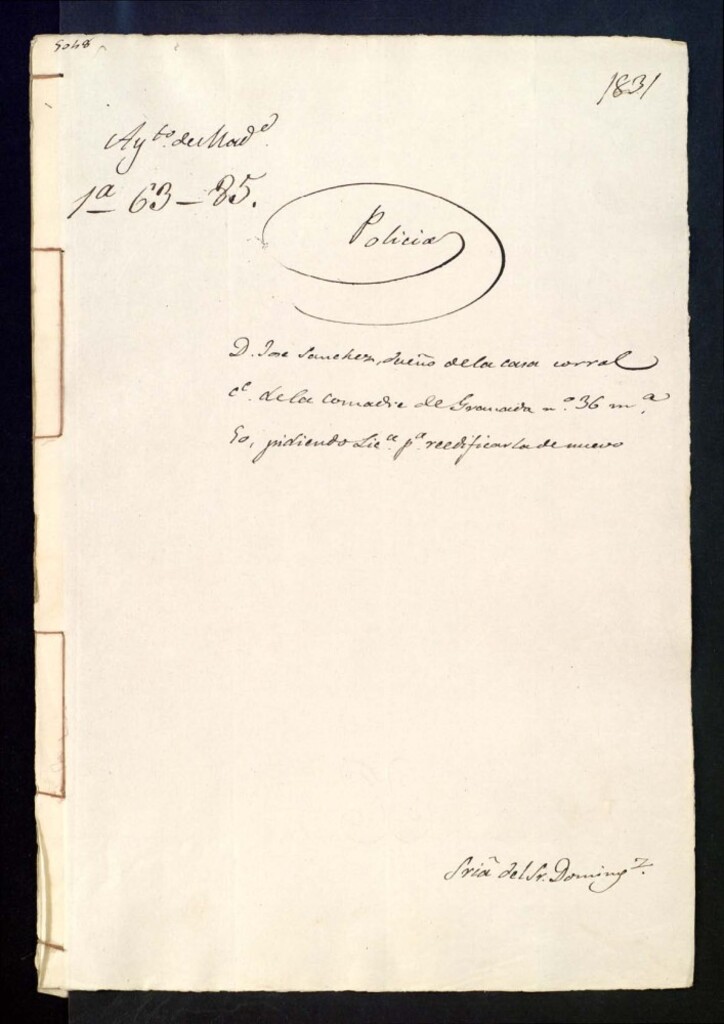 1831
Ayto. de Madd.
1ª 63-85.
Policia
D. Jose Sanchez, dueño de la casa corral
ce. de la comadre de Granada nº. 36 mª.
50, pidiendo Lica. pª. reedificarla de nuevo
Sria del Sr. Domingz.